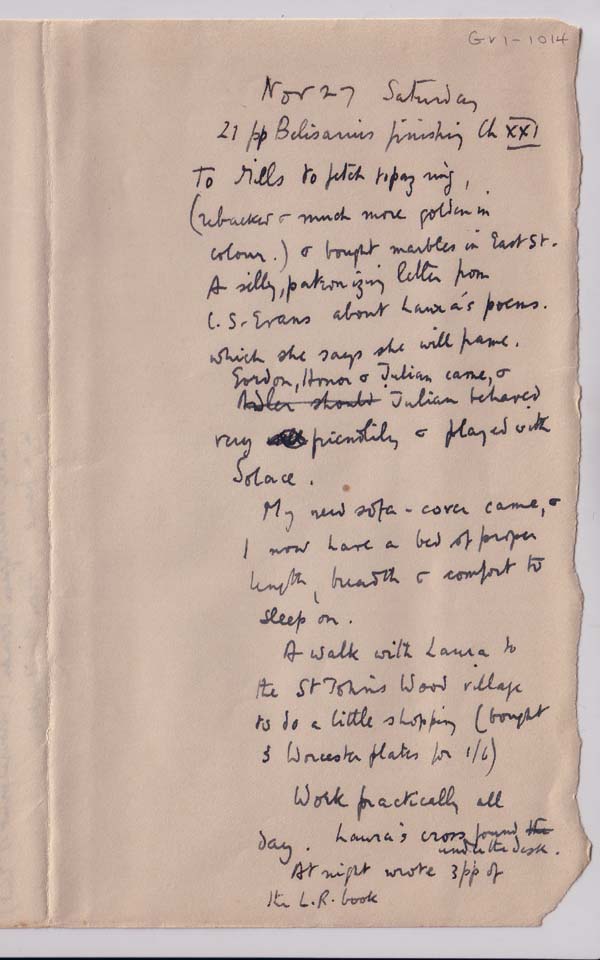 GV1-1014
Nov 27 Saturday
21 pp Belisarius finishing Ch XXI
To Mells to fetch topaz ring,
(rebacked & much more golden in
colour.) & bought marbles in East St.
A silly, patronizing letter from
C.S. Evans about Laura's poems.
which she says she will frame.
Gordon, Honor & Julian came, &
Adler should Julian behaved
very friendlily & played with
Solace.
My new sofa-cover came, &
I now have a bed of proper
length, breadth & comfort to
sleep on.
A walk with Laura to
the St John's Wood village
to do a little shopping (bought
3 Worcester plates for 1/6)
Work practically all
day. Laura's cross found the
under the desk.
At night wrote 3 pp of
the L.R. book